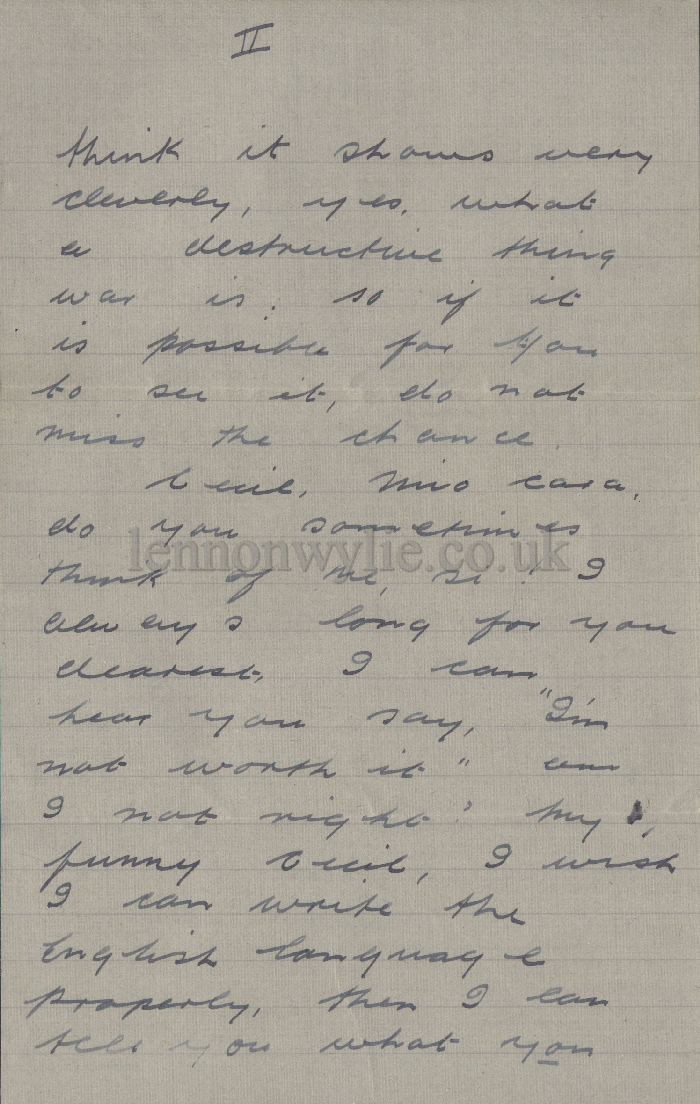 II
think it shows very
cleverly, yes, what
a destructive thing
war is; so if it
is possible for you
to see it, do not
miss the chance.
Cecil, mio cara,
do you sometimes
lennonwylie.co.uk
think of me, si? I
always long for you
dearest, I can
hear you say, "I'm
not worth it" am
I not right? My
funny Cecil, I wish
I can write the
English language
properly, then I can
tell you what you